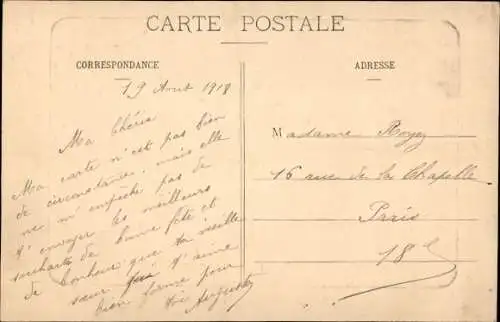 CARTE POSTALE
CORRESPONDANCE
19 Aout 1918
Ma Chérie
Ma carte n'est pas bien
de circonstance, mais elle
ne m'empêche pas de
t'envoyer les meilleurs
souhaits de bonne fête et
de bonheur que ta vieille
sœur qui t'aime
bien forme pour
toi Auguste
ADRESSE
Madame Royez
16 rue de la Chapelle
Paris
18e